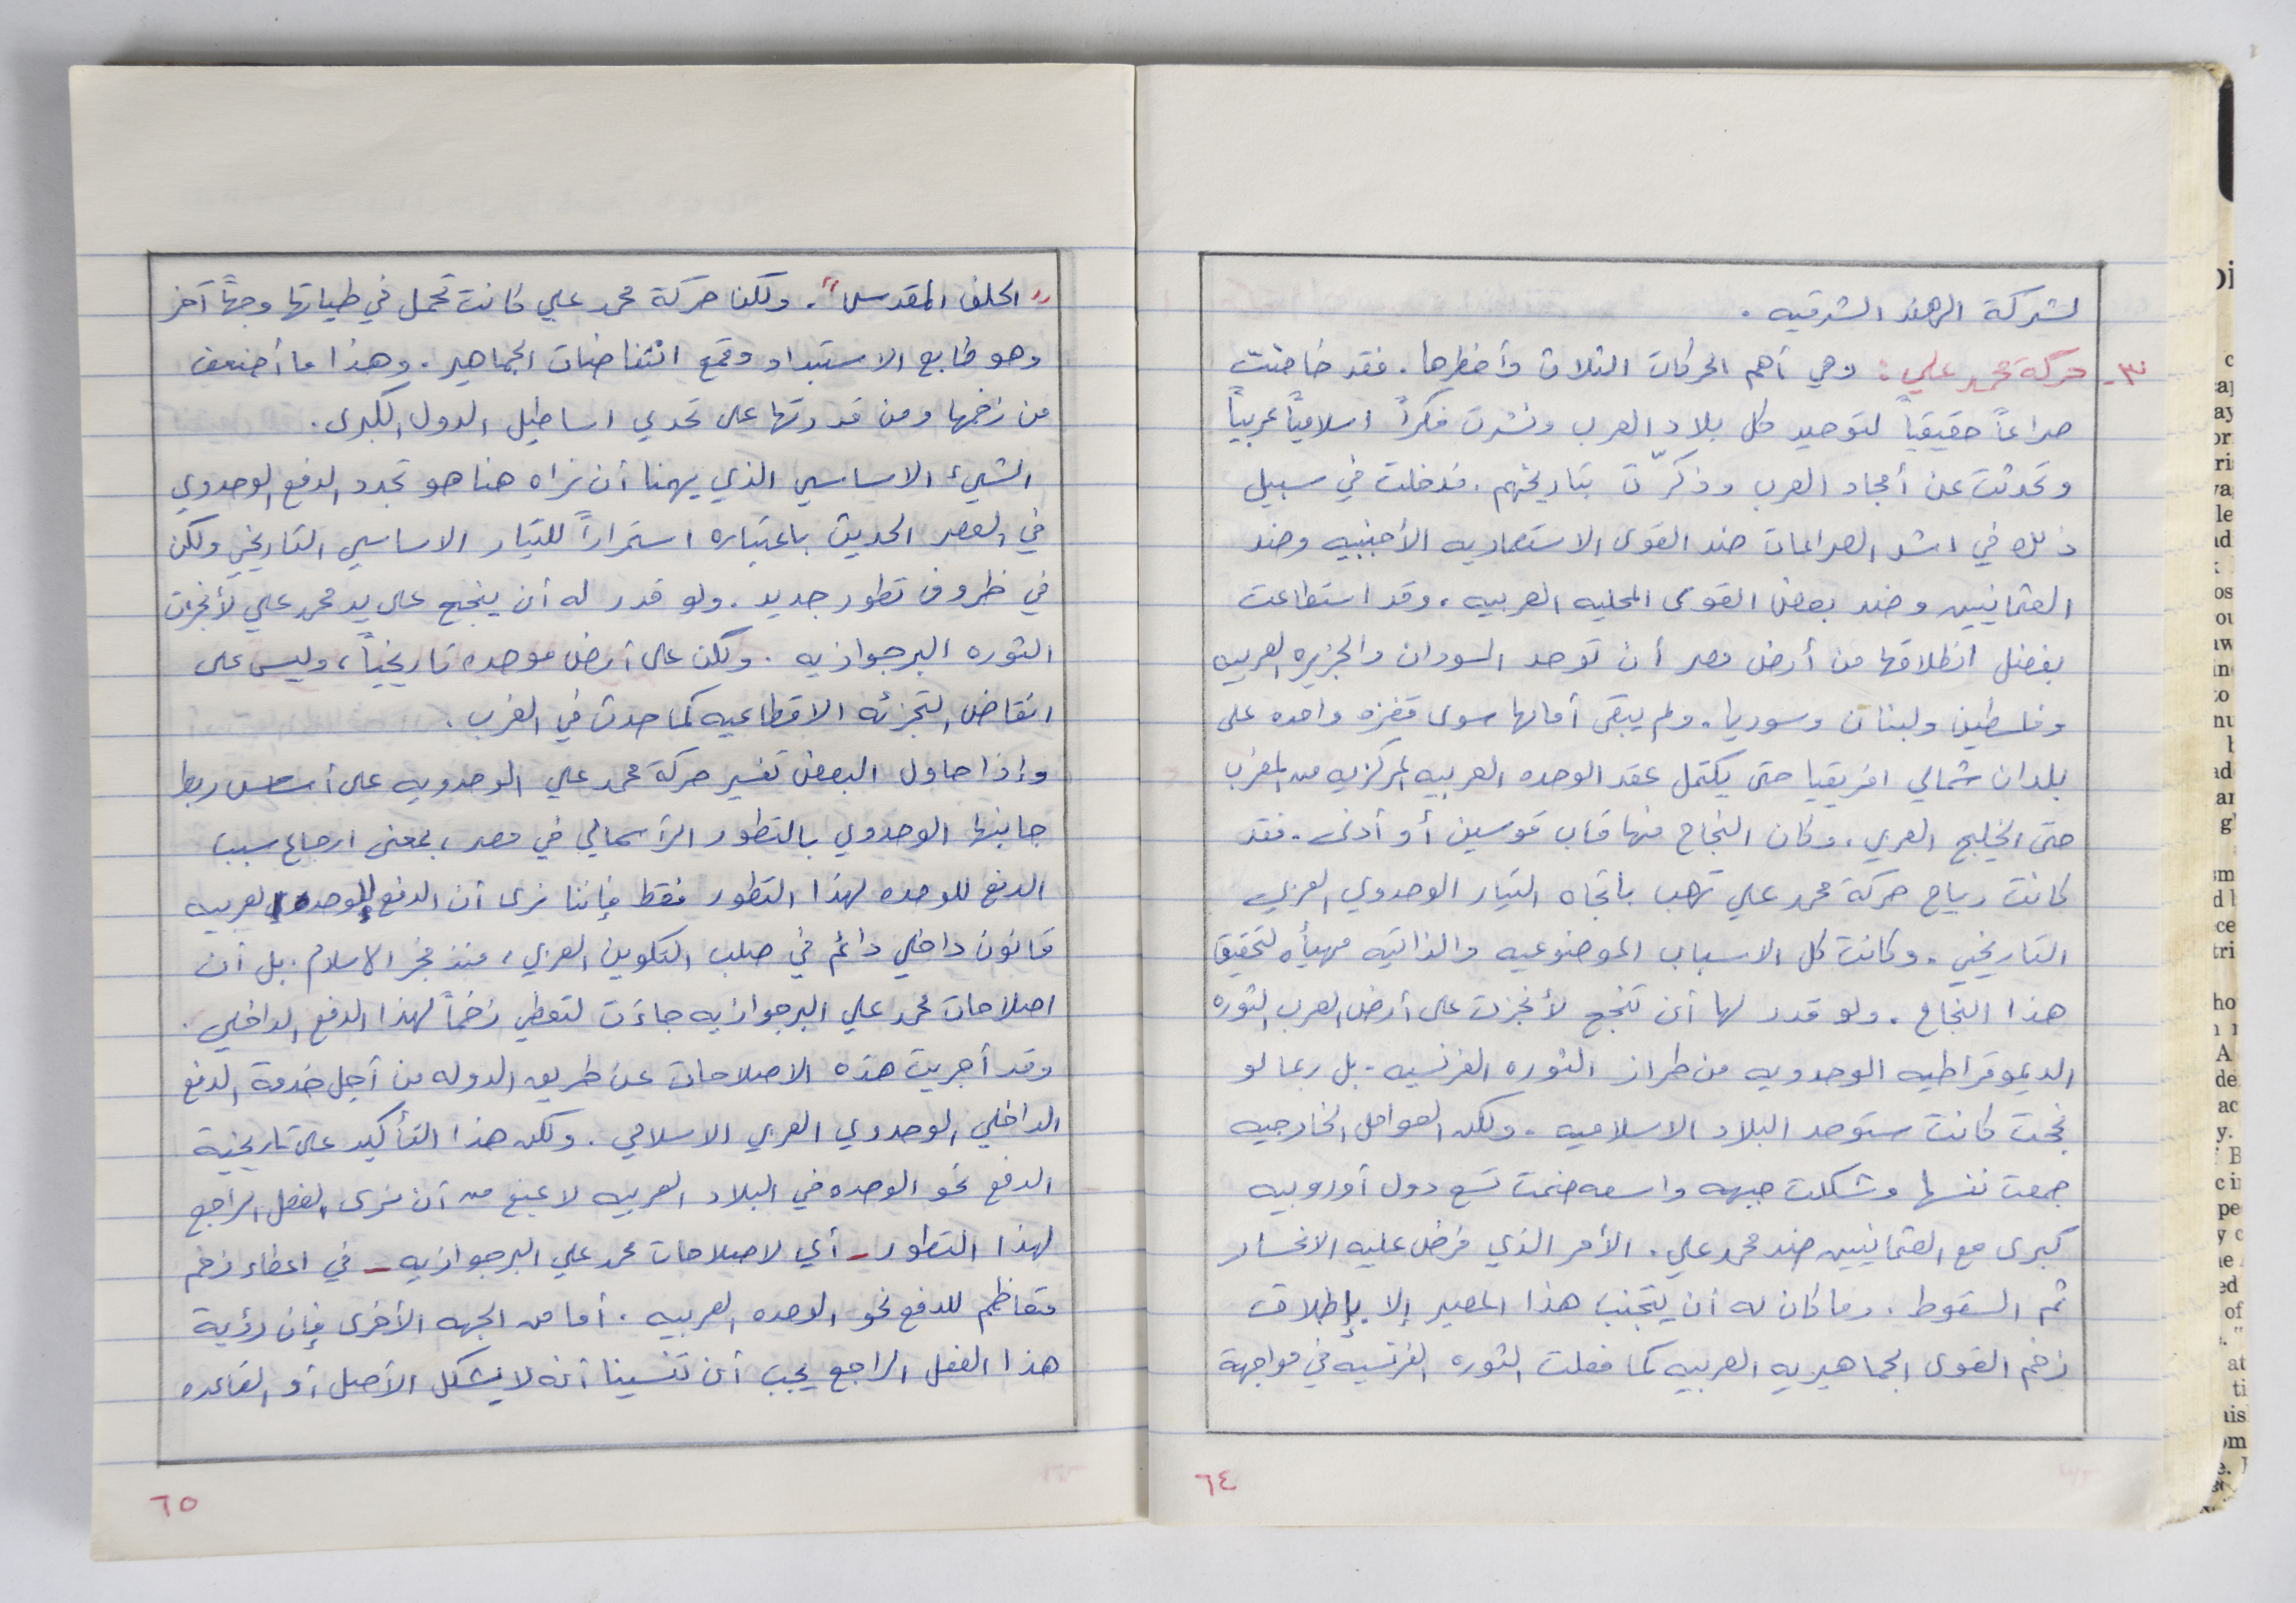 لشركة الهند الشرقيه .
٣- حركة محمد علي : وهي أهم الحركات الثلاث وأخطرها . فقد خاضت
صراعاً حقيقياً لتوحيد كل بلاد العرب ونشرت فكراً اسلامياً عربياً
وتحدثت عن أمجاد العرب وذكّرت بتاريخهم . فدخلت في سبيل
ذلك في اشد الصراعات ضد القوى الاستعماريه الأجنبيه وضد
العثمانيين وضد بعض القوى المحليه العربيه . وقد استطاعت
بفضل انطلاقها من أرض مصر أن توحد السودان والجزيره العربيه
وفلسطين ولبنان وسوريا . ولم يبقى أمامها سوى قفزه واحده على
بلدان شمالي افريقيا حتى يكتمل عقد الوحده العربيه المركزيه من المغرب
حتى الخليج العربي . وكان النجاح منها قاب قوسين أو أدنى . فقد
كانت رياح حركة محمد علي تهب باتجاه التيار الوحدوي العربي
التاريخي . وكانت كل الاسباب الموضوعيه والذاتيه مهيأه لتحقيق
هذا النجاح . ولو قدر لها أن تنجح لأنجزت على أرض العرب الثوره
الديموقراطيه الوحدويه من طراز الثوره الفرنسيه . بل ربما لو
نجحت كانت ستوحد البلاد الاسلاميه . ولكن العوامل الخارجيه
جمعت نفسها وشكلت جبهه واسعه ضمت تسع دول أوروبيه
كبرى مع العثمانيين ضد محمد علي . الأمر الذي فرض عليه الانحسار
ثم السقوط . وما كان له أن يتجنب هذا المصير إلا بإطلاق
زخم القوى الجماهيريه العربيه كما فعلت الثوره الفرنسيه في مواجهة
٦٤
" الحلف المقدس " . ولكن حركة محمد علي كانت تحمل في طياتها وجهاً آخر
وهو طابع الاستبداد وقمع انتفاضات الجماهير . وهذا ما أضعف
من زخمها ومن قدرتها على تحدي اساطيل الدول الكبرى .
الشيء الاساسي الذي يهمنا أن نراه هنا هو تجدد الدفع الوحدوي
في العصر الحديث باعتباره استمراراً للتيار الاساسي التاريخي ولكن
في ظروف تطور جديد . ولو قدر له أن ينجح على يد محمد علي لأنجزت
الثوره البرجوازيه . ولكن على أرض موحده تاريخياً ، وليس على
انقاض التجزئه الاقطاعيه كما حدث في الغرب .
وإذا حاول البعض تفسير حركة محمد علي الوحدويه على أساس ربط
جانبها الوحدوي بالتطور الرأسمالي في مصر ، بمعنى ارجاع سبب
الدفع للوحده لهذا التطور فقط فإننا نرى أن الدفع للوحده العربيه
قانون داخلي دائم في صلب التكوين العربي ، منذ فجر الاسلام . بل أن
اصلاحات محمد علي البرجوازيه جاءت لتعطي زخماً لهذا الدفع الداخلي .
وقد أجريت هذه الاصلاحات عن طريق الدوله من أجل خدمة الدفع
الداخلي الوحدوي العربي الاسلامي . ولكن هذا التأكيد على تاريخية
الدفع نحو الوحده في البلاد العربيه لا يمنع من أن نرى الفعل الراجع
لهذا التطور - أي لاصلاحات محمد علي البرجوازيه - في اعطاء زخم
متعاظم للدفع نحو الوحده العربيه . أما من الجهه الأخرى فإن رؤية
هذا الفعل الراجع يجب أن تنسينا أنه لا يشكل الأصل أو القاعده
٦٥